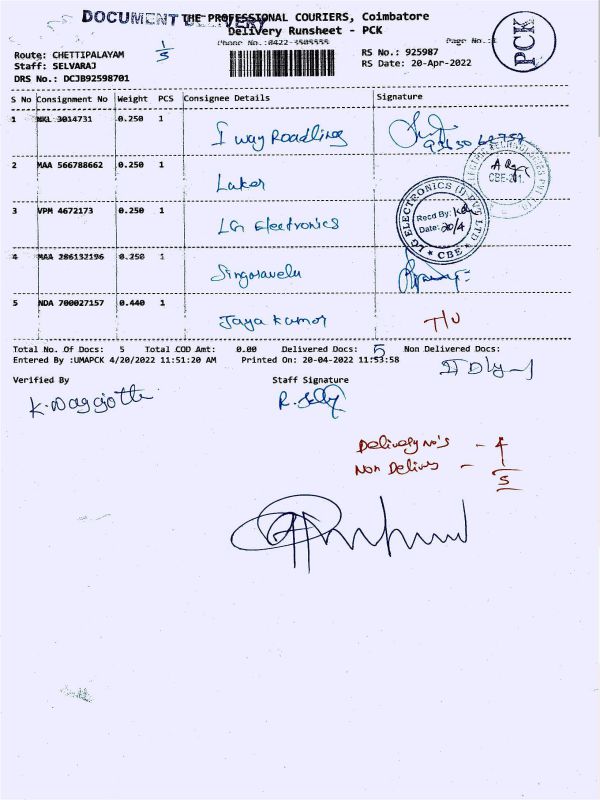 DOCUMENT DELIVERY
THE PROFESSIONAL COURIERS, Coimbatore
Delivery Runsheet - PCK
Phone No.:0422-3505555
Page No.:1
PCK
1/5
Route: CHETTIPALAYAM
Staff: SELVARAJ
DRS No.: DCJB92598701
RS No.: 925987
RS Date: 20-Apr-2022
S No Consignment No Weight PCS Consignee Details Signature
1 NKL 3014731 0.250 1 I way Roadlines
2 MAA 566788662 0.250 1 Laker
CBE-201.
3 VPM 4672173 0.250 1 LG Electronics
LG ELECTRONICS (I) PVT LTD
Recd By:
Date: 20/4
* CBE *
4 MAA 286132196 0.250 1 Singaravelu
5 NDA 700027157 0.440 1 Jaya Kumar
Total No. Of Docs: 5 Total COD Amt: 0.00 Delivered Docs: 5 Non Delivered Docs:
Entered By :UMAPCK 4/20/2022 11:51:20 AM Printed On: 20-04-2022 11:53:58
Verified By Staff Signature
Delivery No's - 4
Non Delivery - 1
5